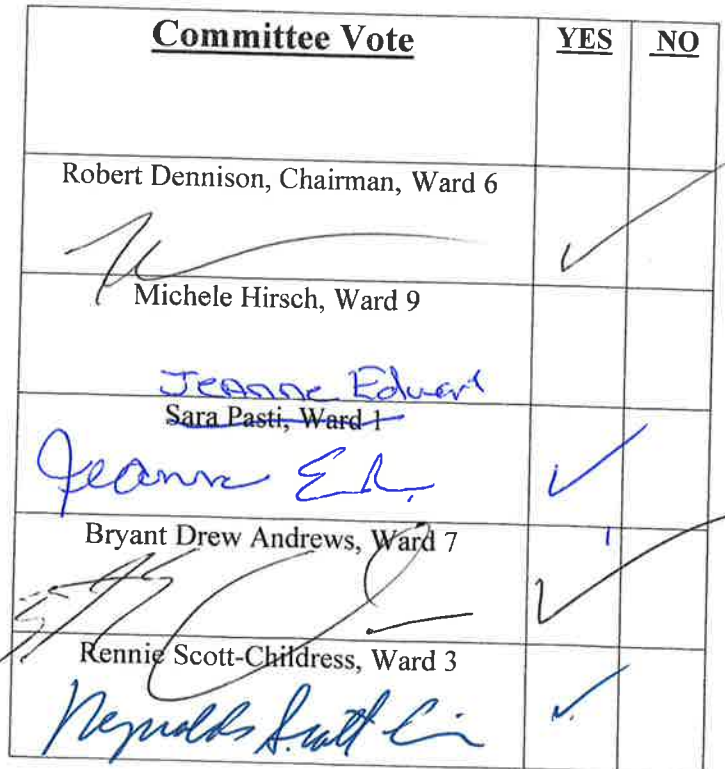 Committee Vote YES NO
Robert Dennison, Chairman, Ward 6
Michele Hirsch, Ward 9
Jeanne Edwart
Sara Pasti, Ward 1
Jeanne
Bryant Drew Andrews, Ward 7
Rennie Scott-Childress, Ward 3
Reynolds Scott